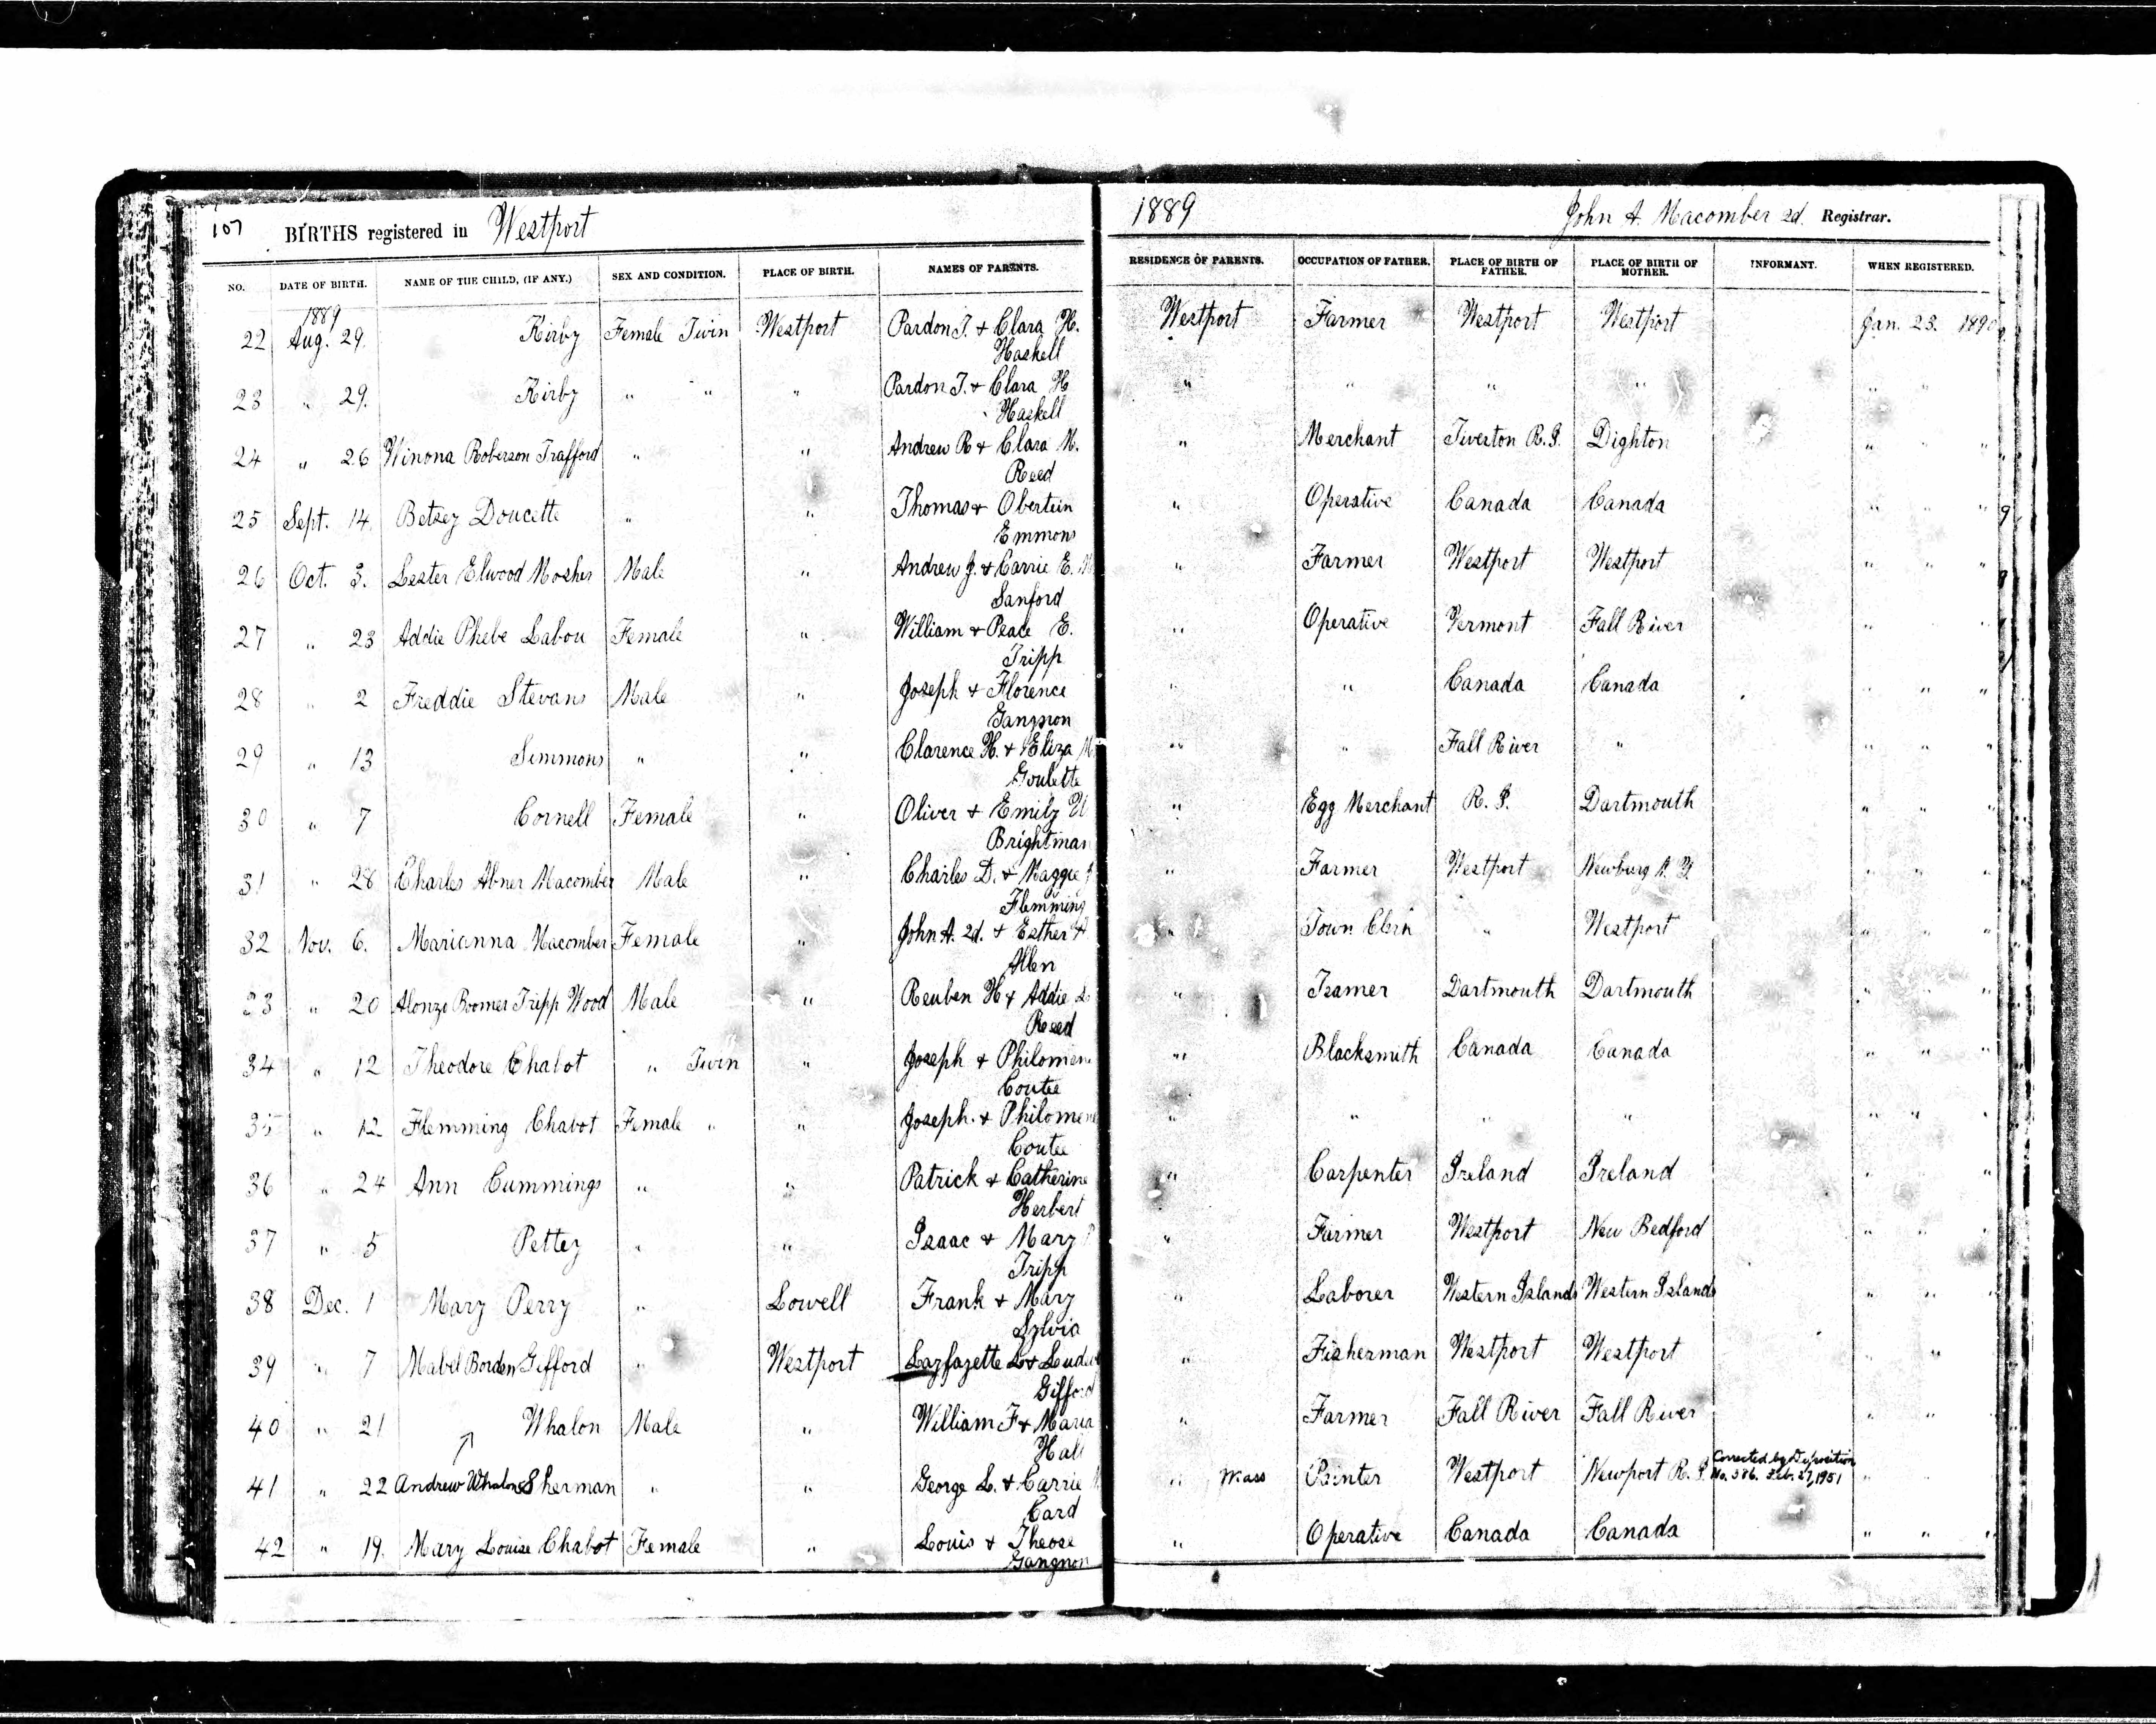 107 BIRTHS registered in Westport 1889 John A. Macomber 2d. Registrar.
NO. DATE OF BIRTH. NAME OF THE CHILD, (IF ANY.) SEX AND CONDITION. PLACE OF BIRTH. NAMES OF PARENTS. RESIDENCE OF PARENTS. OCCUPATION OF FATHER. PLACE OF BIRTH OF FATHER. PLACE OF BIRTH OF MOTHER. INFORMANT. WHEN REGISTERED.
1889
22 Aug. 29. Kirby Female Twin Westport Pardon T. + Clara H. Westport Farmer Westport Westport Jan. 23. 1890
Haskell
23 " 29. Kirby " " " Pardon T. + Clara H " " " " " "
Haskell
24 " 26 Winona Roberson Trafford " " Andrew R + Clara M. " Merchant Tiverton R.I. Dighton " " "
Reed
25 Sept. 14. Betsey Doucette " " Thomas + Obertein " Operative Canada Canada " " "
Emmons
26 Oct. 3. Lester Elwood Mosher Male " Andrew J. + Carrie E. " Farmer Westport Westport " " "
Sanford
27 " 23 Addie Phebe Labou Female " William + Peace E. " Operative Vermont Fall River " " "
Tripp
28 " 2 Freddie Stevans Male " Joseph + Florence " " Canada Canada " " "
Gangnon
29 " 13 Simmons " " Clarence H. + Eliza M " " Fall River " " " "
Goulette
30 " 7 Cornell Female " Oliver + Emily " Egg Merchant R. I. Dartmouth " " "
Brightman
31 " 28 Charles Abner Macomber Male " Charles D. + Maggie " Farmer Westport Newburg N. Y. " " "
Flemming
32 Nov. 6. Marianna Macomber Female " John A. 2d. + Esther A " Town Clerk " Westport " " "
Allen
33 " 20 Alonzo Boomer Tripp Wood Male " Reuben H + Addie " Teamer Dartmouth Dartmouth " " "
Reed
34 " 12 Theodore Chabot " Twin " Joseph + Philomene " Blacksmith Canada Canada " " "
Coutee
35 " 12 Flemming Chabot Female " " Joseph + Philomene " " " " " " "
Coutee
36 " 24 Ann Cummings " " Patrick + Catherine " Carpenter Ireland Ireland " " "
Herbert
37 " 5 Pettey " " Isaac + Mary " Farmer Westport New Bedford " " "
Tripp
38 Dec. 1 Mary Perry " Lowell Frank + Mary " Laborer Western Islands Western Islands " " "
Sylvia
39 " 7 Mabel Borden Gifford " Westport Layfayette L + " Fisherman Westport Westport " "
Gifford
40 " 21 Whalon Male " William F + Maria " Farmer Fall River Fall River " "
Hall
41 " 22 Andrew Whalon Sherman " " George L. + Carrie " Mass Painter Westport Newport R. I. Corrected by Deposition " "
No. 386. Feb. 27, 1951
Card
42 " 19. Mary Louise Chabot Female " Louis + Theose " Operative Canada Canada " " "
Gangnon